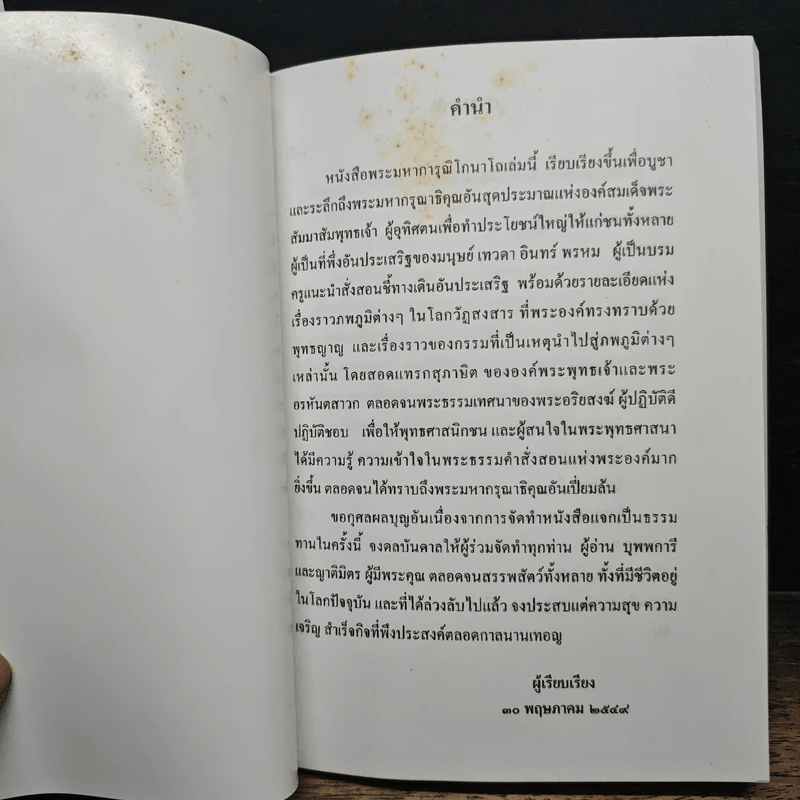 คำนำ
หนังสือพระมหาการุณิโกนาโถเล่มนี้ เรียบเรียงขึ้นเพื่อบูชา
และระลึกถึงพระมหากรุณาธิคุณอันสุดประมาณแห่งองค์สมเด็จพระ
สัมมาสัมพุทธเจ้า ผู้อุทิศตนเพื่อทำประโยชน์ใหญ่ให้แก่ชนทั้งหลาย
ผู้เป็นที่พึ่งอันประเสริฐของมนุษย์ เทวดา อินทร์ พรหม ผู้เป็นบรม
ครูแนะนำสั่งสอนชี้ทางเดินอันประเสริฐ พร้อมด้วยรายละเอียดแห่ง
เรื่องราวภพภูมิต่างๆ ในโลกวัฏสงสาร ที่พระองค์ทรงทราบด้วย
พุทธญาญ และเรื่องราวของกรรมที่เป็นเหตุนำไปสู่ภพภูมิต่างๆ
เหล่านั้น โดยสอดแทรกสุภาษิต ขององค์พระพุทธเจ้าและพระ
อรหันตสาวก ตลอดจนพระธรรมเทศนาของพระอริยสงฆ์ ผู้ปฏิบัติดี
ปฏิบัติชอบ เพื่อให้พุทธศาสนิกชน และผู้สนใจในพระพุทธศาสนา
ได้มีความรู้ ความเข้าใจในพระธรรมคำสั่งสอนแห่งพระองค์มาก
ยิ่งขึ้น ตลอดจนได้ทราบถึงพระมหากรุณาธิคุณอันเปี่ยมล้น
ขอกุศลผลบุญอันเนื่องจากการจัดทำหนังสือแจกเป็นธรรม
ทานในครั้งนี้ จงดลบันดาลให้ผู้ร่วมจัดทำทุกท่าน ผู้อ่าน บุพพการี
และญาติมิตร ผู้มีพระคุณ ตลอดจนสรรพสัตว์ทั้งหลาย ทั้งที่มีชีวิตอยู่
ในโลกปัจจุบัน และที่ได้ล่วงลับไปแล้ว จงประสบแต่ความสุข ความ
เจริญ สำเร็จกิจที่พึงประสงค์ตลอดกาลนานเทอญ
ผู้เรียบเรียง
๓๐ พฤษภาคม ๒๕๔๙